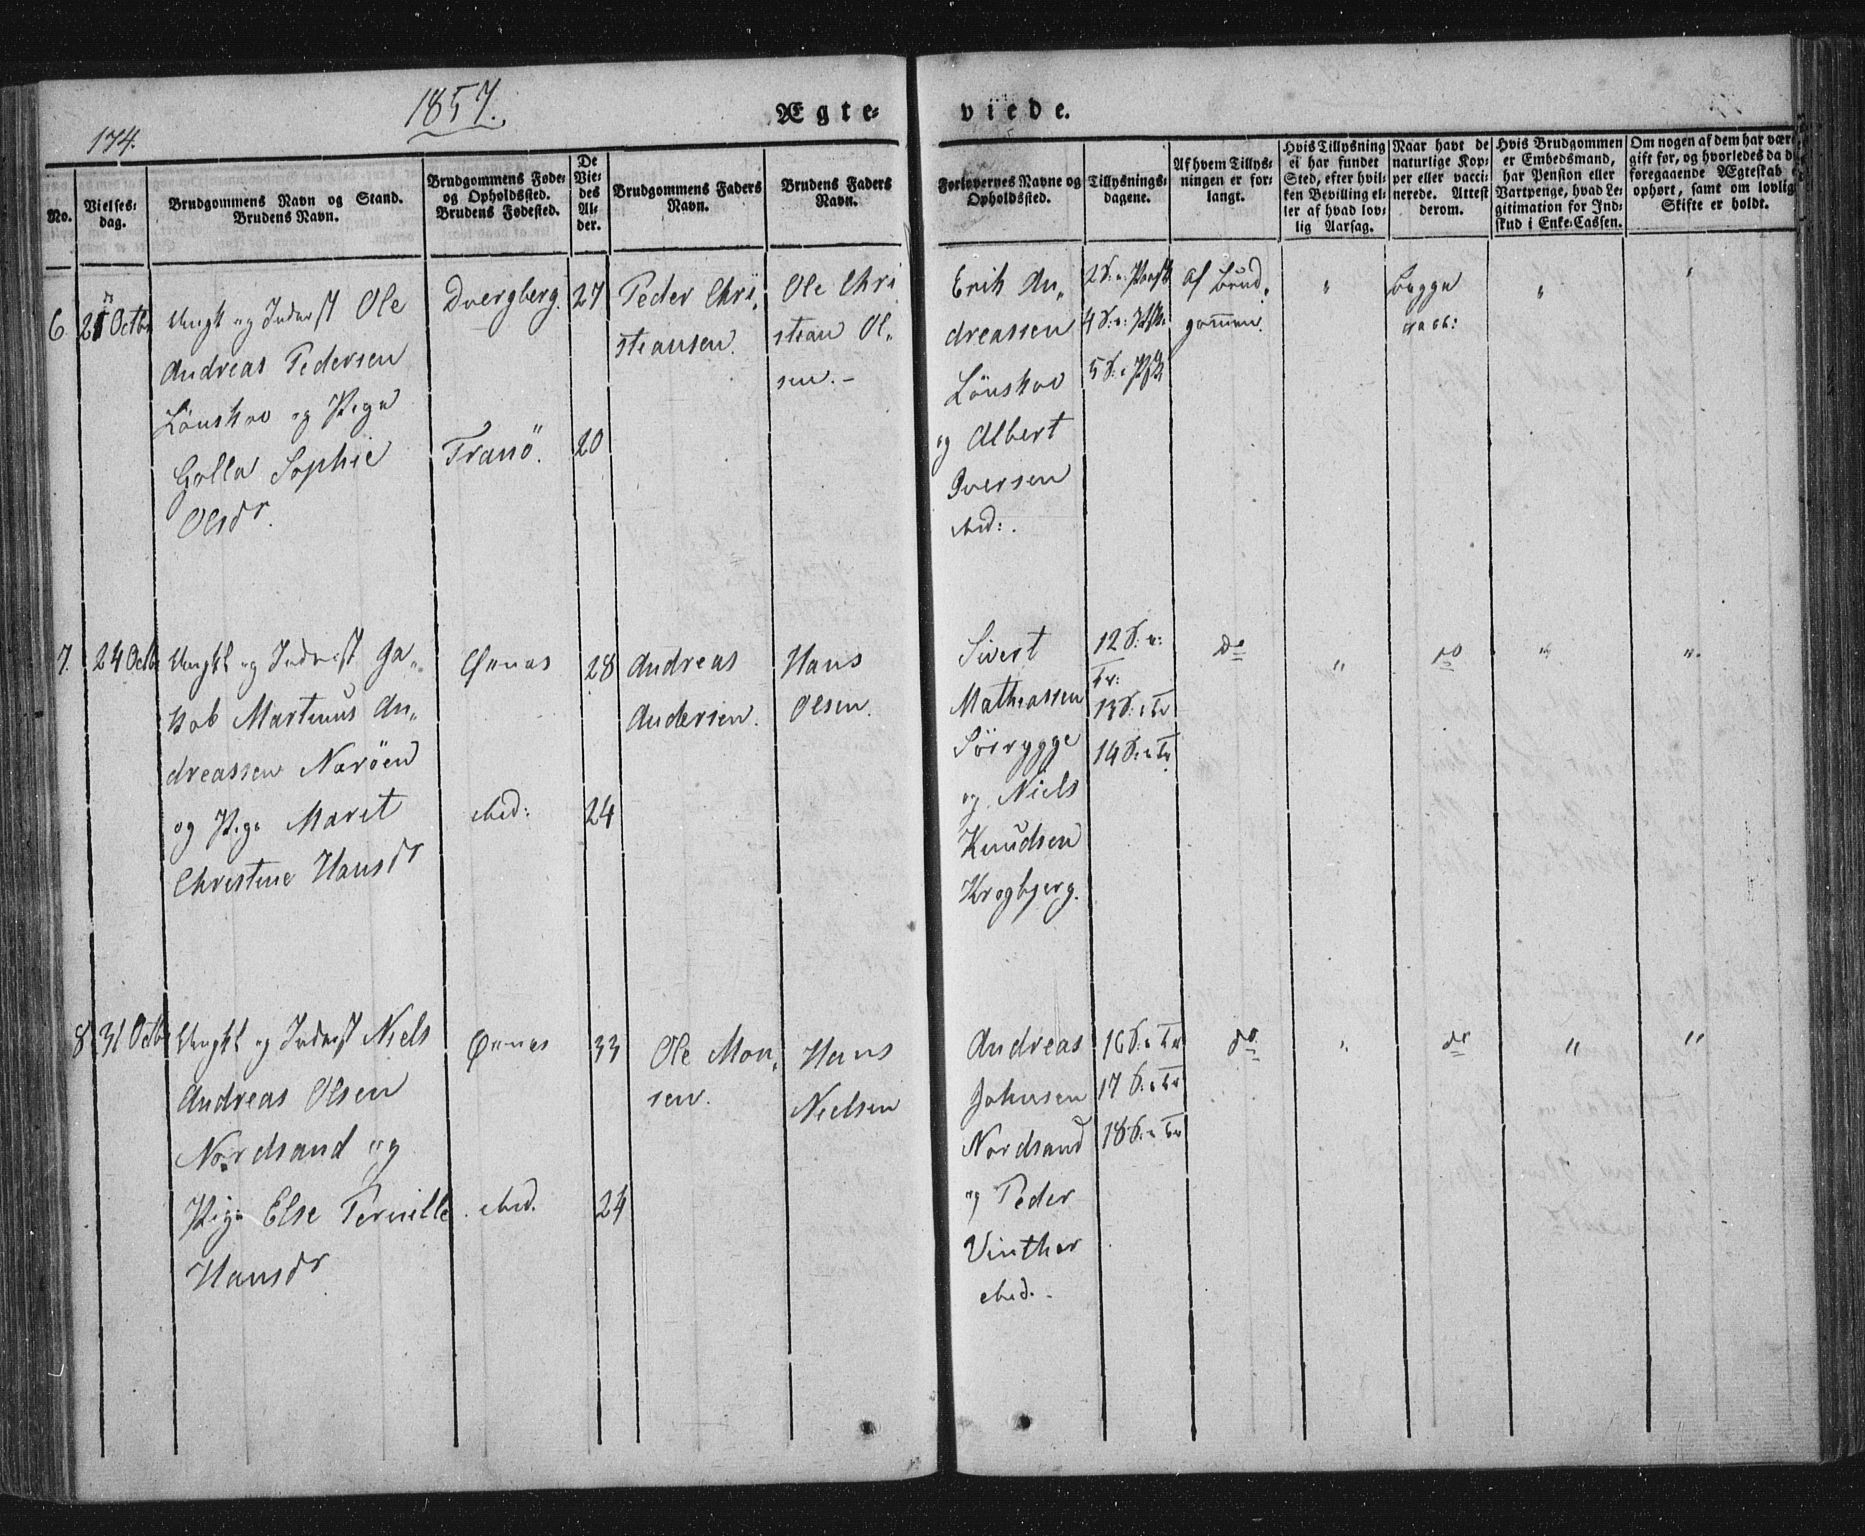 1857.
174.
Ægte-
viede.
No.
Vielses-
dag.
Brudgommens Navn og Stand.
Brudens Navn.
Brudgommens Føde-
og Opholdssted.
Brudens Fødested.
De
Vie-
des
Al-
der.
Brudgommens Faders
Navn.
Brudens Faders
Navn.
Forlovernes Navne og
Opholdssted.
Tillysnings-
dagene.
Af hvem Tillys-
ningen er for-
langt.
Hvis Tillysning
ei har fundet
Sted, efter hvil-
ken Bevilling el-
ler af hvad lov-
lig Aarsag.
Naar havt de
naturlige Kop-
per eller vacci-
nerede. Attest
derom.
Hvis Brudgommen
er Embedsmand,
har Pension eller
Vartpenge, hvad Le-
gitimation for Ind-
skud i Enke-Cassen.
Om nogen af dem har være
gift før, og hvorledes da d
foregaaende Ægtestad e
ophørt, samt om lovlig
Skifte er holdt.
6.
21 Octb
Ungk og Inderst Ole
Andreas Pedersen
Lönskov og Pige
Golla Sophie
Olsdr.
Dvergberg.
Tranö.
27
20
Peder Chri-
stiansen.
Ole Chri
stian Ol-
sen. -
Erik An-
dreassen
Lönskov
og Albert
Iversen
ibid:.
af Brud-
gommen.
"
Begge
vacc:
"
"
7.
24 Octb
Ungkl og Inderst Ja-
kob Martinus An-
dreassen Noröen
og Pige Marit
Christine Hansdr
Öxnes
ibid:
28
24
Andreas
Andersen.
Hans
Olsen.
Sivert
Matheassen
Söirygge
og Niels
Knudsen
Krogbjerg.
12 S. e:
Tr:
13 S. e Tr
14 S. e Tr
do
"
do
"
"
8
31 Octb
Ungkl og Inderst Niels
Andreas Olsen
Nordsand og
Pige Else Pernille
Hansdr
Öxnes
ibid.
33
24
Ole Mon-
sen.
Hans
Nielsen
Andreas
Johnsen
Nordsand
og Peder
Vinther
ibid. -
16 S. e Tr
17 S. e Tr
18 S. e Tr
do
"
do
"
"